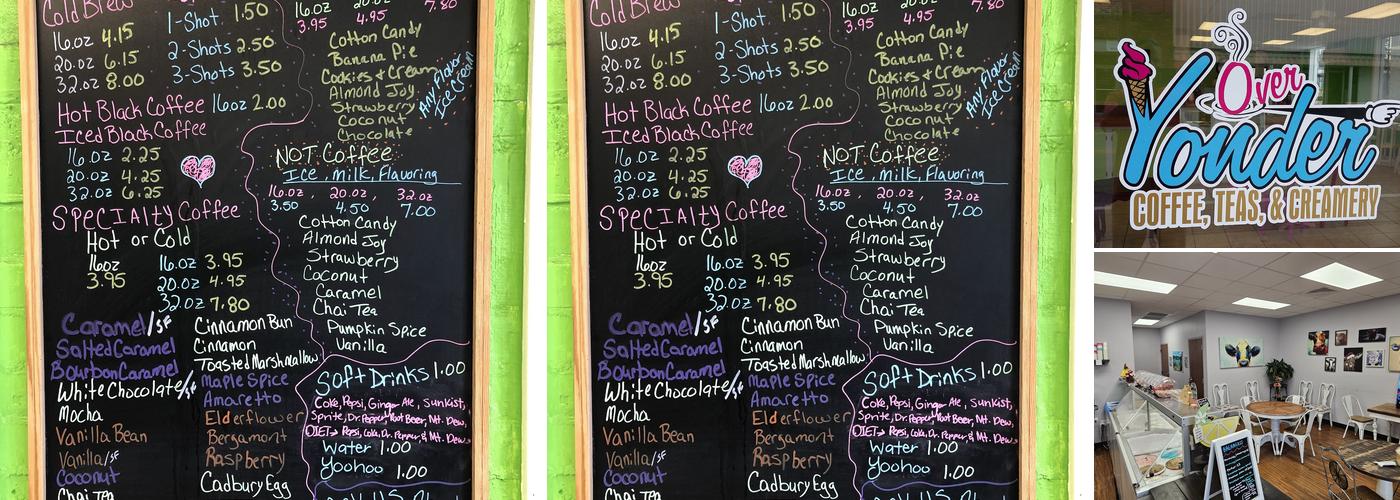 Cold Brew
16.oz 4.15
20.oz 6.15
32.oz 8.00
1-Shot 1.50
2-Shots 2.50
3-Shots 3.50
Hot Black Coffee 16oz 2.00
Iced Black Coffee
16.oz 2.25
20.oz 4.25
32.oz 6.25
Specialty Coffee
Hot or Cold
16oz
3.95
16.oz 3.95
20.oz 4.95
32oz 7.80
Caramel/sf
Salted Caramel
Bourbon Caramel
White Chocolate/sf
Mocha
Vanilla Bean
Vanilla/sf
Coconut
Chai Tea
Cinnamon Bun
Cinnamon
Toasted Marshmallow
Maple Spice
Amaretto
Elderflower
Bergamont
Raspberry
Cadbury Egg
3.95 4.95 7.80
Cotton Candy
Banana Pie
Cookies & Cream
Almond Joy
Strawberry
Coconut
Chocolate
Any Flavor
Ice Cream
NOT Coffee
Ice, milk, Flavoring
16.oz, 20.oz, 32.oz
3.50 4.50 7.00
Cotton Candy
Almond Joy
Strawberry
Coconut
Caramel
Chai Tea
Pumpkin Spice
Vanilla
Soft Drinks 1.00
Coke, Pepsi, Ginger Ale, Sunkist,
Sprite, Dr. Pepper, Root Beer, Mt. Dew,
DIET→ Pepsi, Coke, Dr. Pepper, & Mt. Dew
Water 1.00
Yoohoo 1.00
Cold Brew
16.oz 4.15
20.oz 6.15
32.oz 8.00
1-Shot 1.50
2-Shots 2.50
3-Shots 3.50
Hot Black Coffee 16oz 2.00
Iced Black Coffee
16.oz 2.25
20.oz 4.25
32.oz 6.25
Specialty Coffee
Hot or Cold
16oz
3.95
16.oz 3.95
20.oz 4.95
32oz 7.80
Caramel/sf
Salted Caramel
Bourbon Caramel
White Chocolate/sf
Mocha
Vanilla Bean
Vanilla/sf
Coconut
Chai Tea
Cinnamon Bun
Cinnamon
Toasted Marshmallow
Maple Spice
Amaretto
Elderflower
Bergamont
Raspberry
Cadbury Egg
3.95 4.95 7.80
Cotton Candy
Banana Pie
Cookies & Cream
Almond Joy
Strawberry
Coconut
Chocolate
Any Flavor
Ice Cream
NOT Coffee
Ice, milk, Flavoring
16.oz, 20.oz, 32.oz
3.50 4.50 7.00
Cotton Candy
Almond Joy
Strawberry
Coconut
Caramel
Chai Tea
Pumpkin Spice
Vanilla
Soft Drinks 1.00
Coke, Pepsi, Ginger Ale, Sunkist,
Sprite, Dr. Pepper, Root Beer, Mt. Dew,
DIET→ Pepsi, Coke, Dr. Pepper, & Mt. Dew
Water 1.00
Yoohoo 1.00
Over
Yonder
COFFEE, TEAS, & CREAMERY